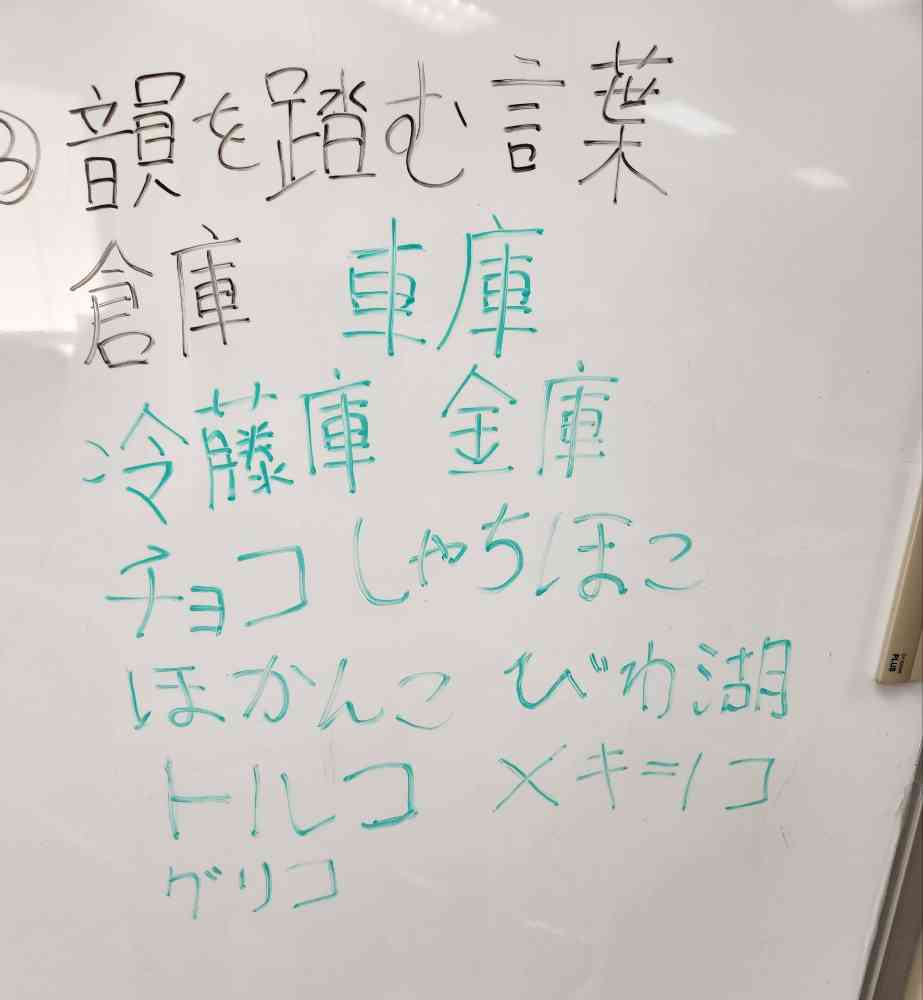 ③ 韻を踏む言葉
倉庫 車庫
冷藤庫 金庫
チョコ しゃちほこ
ほかんこ びわ湖
トルコ メキシコ
グリコ
PLUS